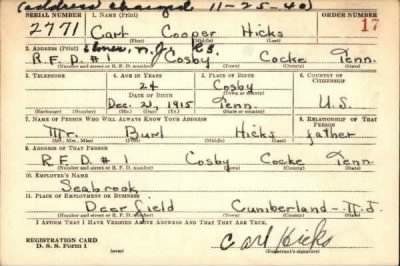 (address changed 11-25-40)
SERIAL NUMBER 1. NAME (Print) ORDER NUMBER
2771 Carl Cooper Hicks 17
(First) (Middle) (Last)
2. ADDRESS (Print) Elmer, N.J.
R.F.D. #1 Cosby Cocke Tenn.
(Number and street or R. F. D. number) (Town) (County) (State)
3. TELEPHONE 4. AGE IN YEARS 5. PLACE OF BIRTH 6. COUNTRY OF CITIZENSHIP
24 Cosby
DATE OF BIRTH (Town or county)
Dec. 21, 1915 Tenn. U.S.
(Exchange) (Number) (Mo.) (Day) (Yr.) (State or country)
7. NAME OF PERSON WHO WILL ALWAYS KNOW YOUR ADDRESS 8. RELATIONSHIP OF THAT PERSON
Mr. Burl Hicks father
(Mr., Mrs., Miss) (First) (Middle) (Last)
9. ADDRESS OF THAT PERSON
R.F.D. #1 Cosby Cocke Tenn.
(Number and street or R. F. D. number) (Town) (County) (State)
10. EMPLOYER'S NAME
Seabrook
11. PLACE OF EMPLOYMENT OR BUSINESS
Deerfield Cumberland - N.J.
(Number and street or R. F. D. number) (Town) (County) (State)
I AFFIRM THAT I HAVE VERIFIED ABOVE ANSWERS AND THAT THEY ARE TRUE.
REGISTRATION CARD
D. S. S. Form 1
(over)
Carl Hicks
(Registrant's signature)